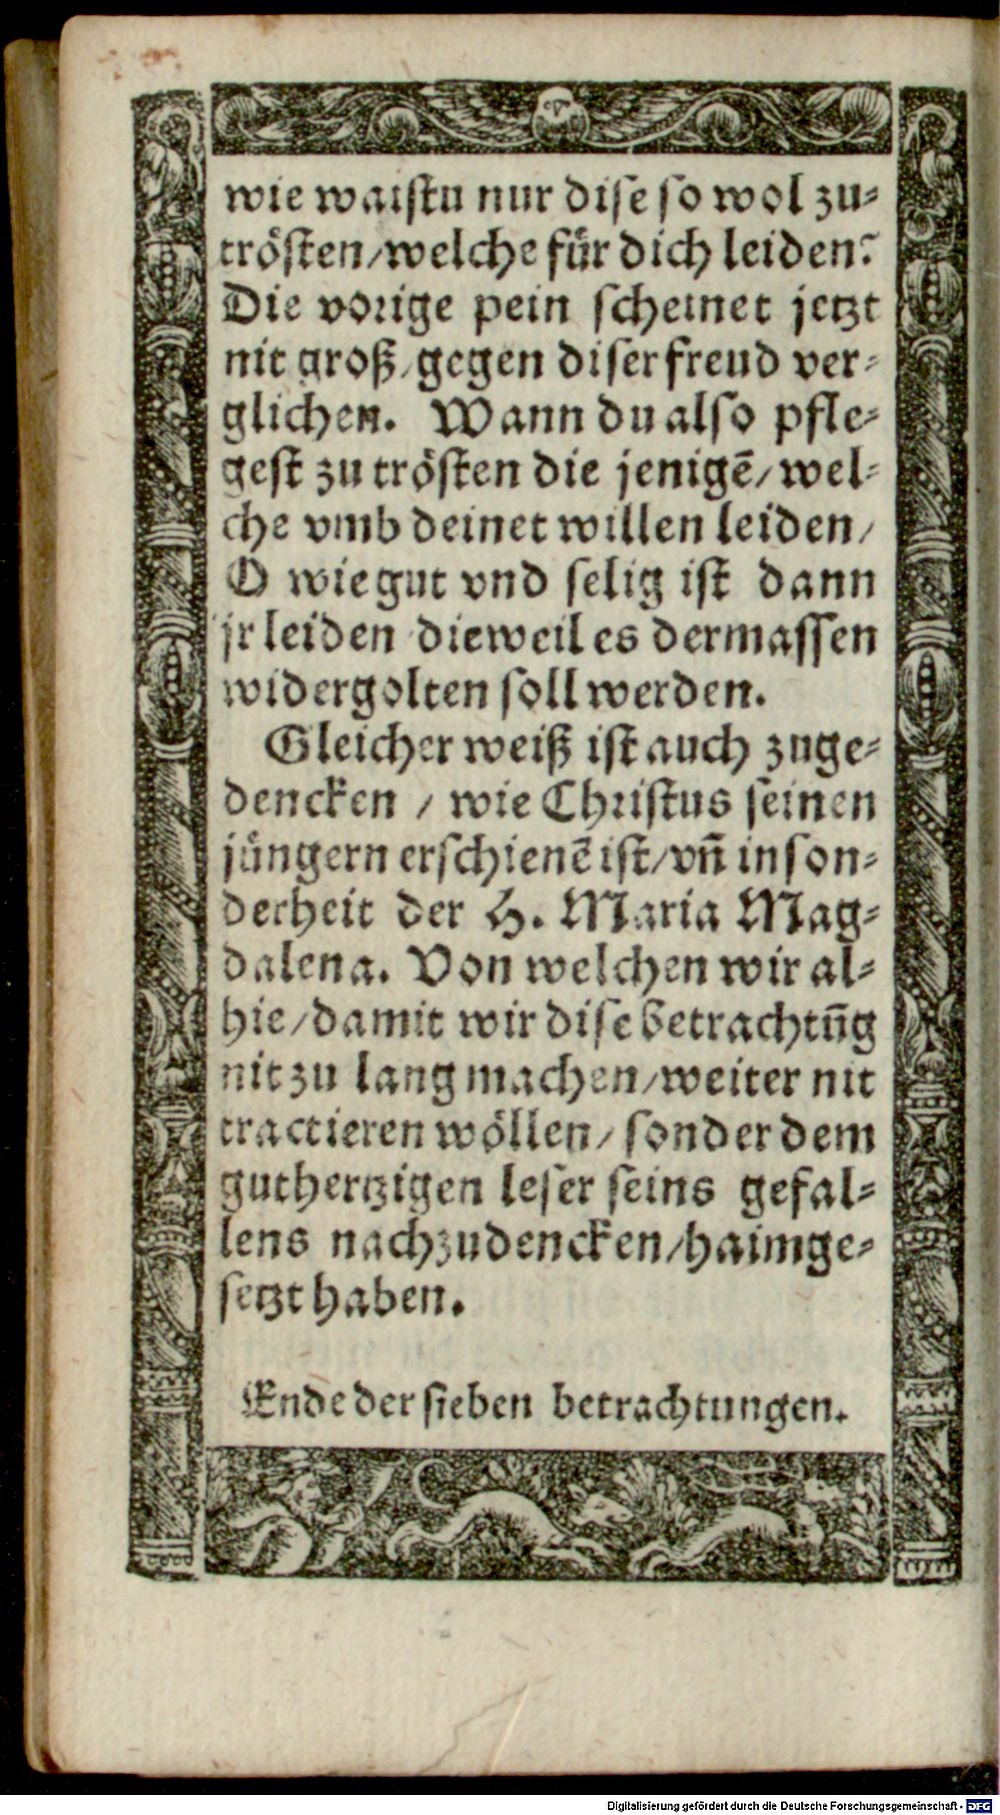 wie waistu nur dise so wol zu-
trösten/welche für dich leiden?
Die vorige pein scheinet jetzt
nit groß/gegen diser freud ver-
glichen. Wann du also pfle-
gest zu trösten die jenigē/wel-
che vmb deinet willen leiden/
O wie gut vnd selig ist dann
jr leiden dieweil es dermassen
widergolten soll werden.
Gleicher weiß ist auch zuge-
dencken / wie Christus seinen
jüngern erschienē ist/vñ inson-
derheit der H. Maria Mag-
dalena. Von welchen wir al-
hie/damit wir dise betrachtūg
nit zu lang machen/weiter nit
tractieren wöllen/sonder dem
guthertzigen leser seins gefal-
lens nachzudencken/haimge-
setzt haben.
Ende der sieben betrachtungen.
Digitalisierung gefördert durch die Deutsche Forschungsgemeinschaft - DFG